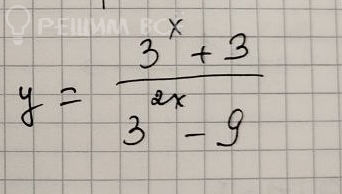 РЕШИМ ВСЁ
y = (3^x + 3) / (3^(2x) - 9)